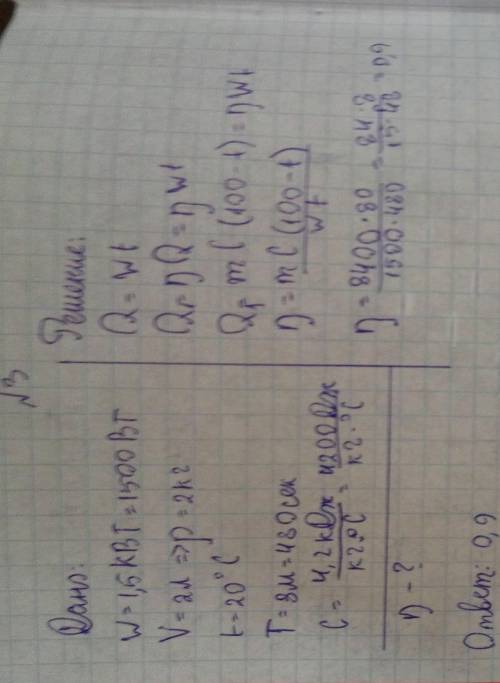 √3
Дано:
W = 1,5кВт = 1500Вт
V = 2л => p = 2кг
t = 20°C
T = 8м = 480сек
C = 4,2кДж/кг·°C = 4200Дж/кг·°C
η - ?
Решение:
Q = Wt
Q₁ = ηQ = ηWt
Q₁ = mC(100-t) = ηWt
η = mC(100-t)/Wt
η = 8400·80/1500·480 = 84·8/15·48 = 0,9
Ответ: 0,9